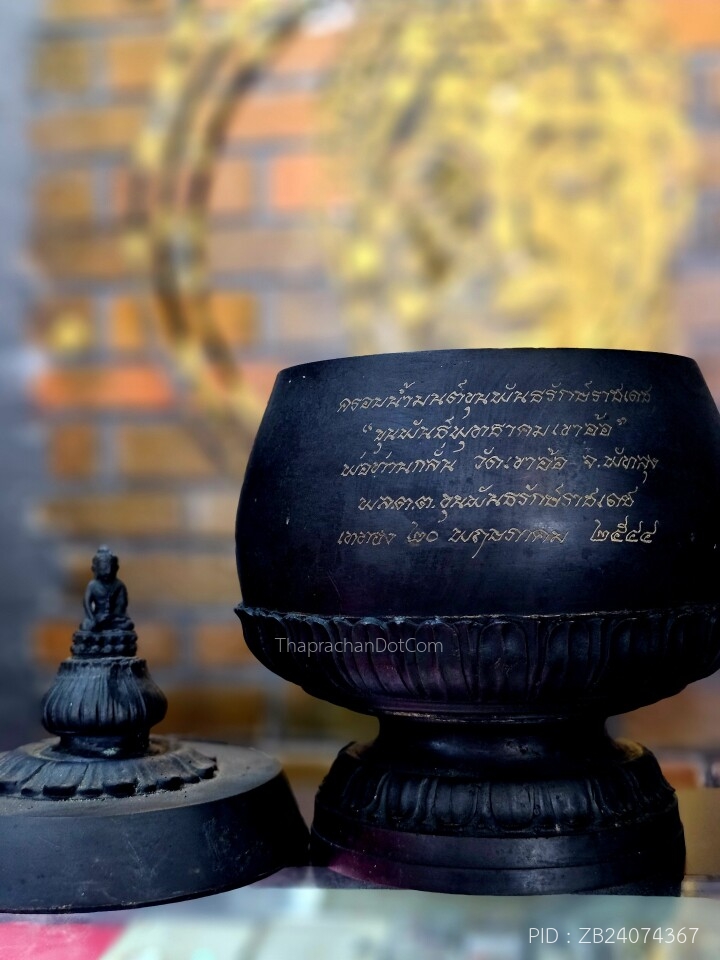 ครอบน้ำมนต์ขุนพันธรักษ์ราชเดช
“ขุนพันธ์พุทธาคมเขาอ้อ”
พ่อท่านกลั่น วัดเขาอ้อ จ.พัทลุง
พล.ต.ต.ขุนพันธรักษ์ราชเดช
เททอง ๒๐ พฤษภาคม ๒๕๔๔
ThaprachanDotCom
PID : ZB24074367